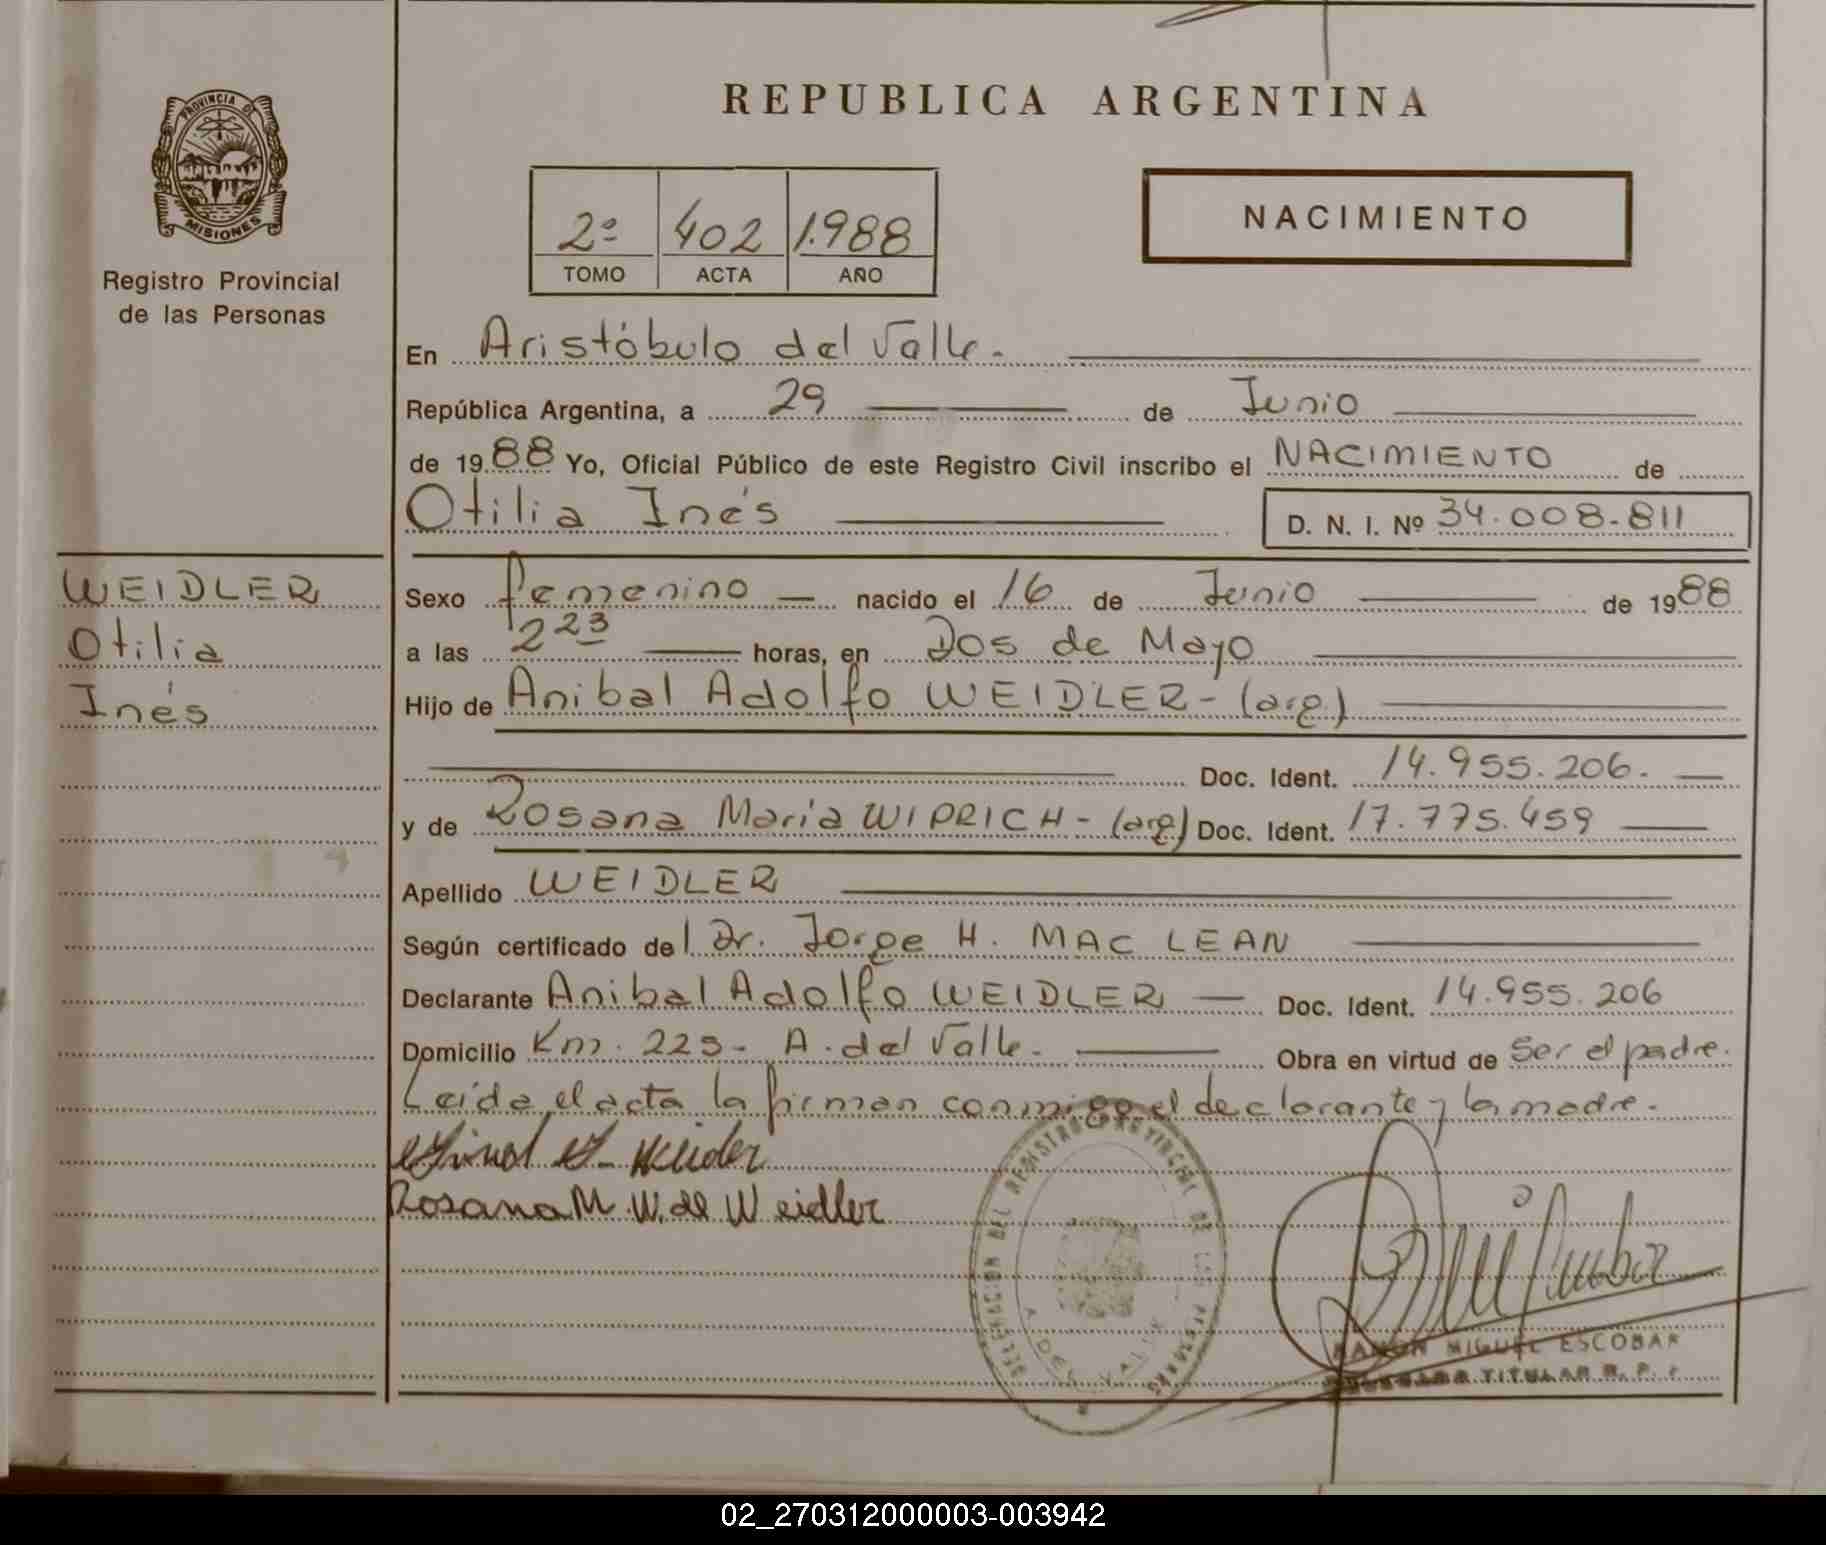 PROVINCIA DE
MISIONES
Registro Provincial
de las Personas
REPUBLICA ARGENTINA
2º 402 1.988
TOMO ACTA AÑO
NACIMIENTO
En Aristóbulo del Valle.
República Argentina, a 29 de Junio
de 1988 Yo, Oficial Público de este Registro Civil inscribo el NACIMIENTO de
Otilia Inés D. N. I. Nº 34.008.811
WEIDLER
Otilia
Inés
Sexo femenino nacido el 16 de Junio de 1988
a las 2 23 horas, en Dos de Mayo
Hijo de Anibal Adolfo WEIDLER - (arg.)
Doc. Ident. 14.955.206.
y de Rosana Maria WIPRICH - (arg) Doc. Ident. 17.775.459
Apellido WEIDLER
Según certificado del Dr. Jorge H. MAC LEAN
Declarante Anibal Adolfo WEIDLER Doc. Ident. 14.955.206
Domicilio Km. 225- A. del Valle. Obra en virtud de ser el padre.
Leida el acta la firman conmigo el declarante y la madre.
Rosana M. W. de Weidler
DELEGACION DEL REGISTRO PROVINCIAL DE LAS PERSONAS
A. DEL VALLE
RAMON MIGUEL ESCOBAR
TITULAR R. P.
02_270312000003-003942